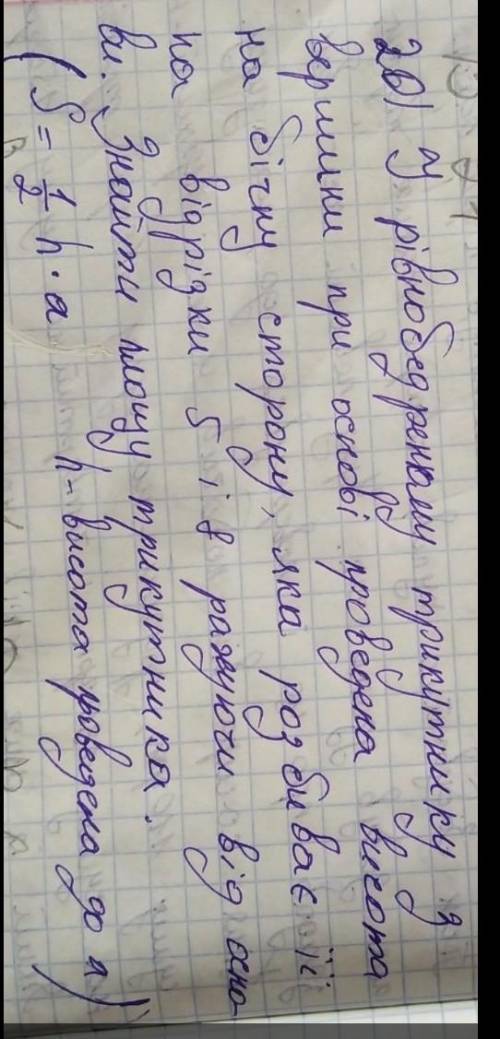 20) У рівнобедреному трикутнику з
вершини при основі проведена висота
на бічну сторону, яка розбиває її
на відрізки 5 і 8 рахуючи від осно-
ви. Знайти площу трикутника.
(S = 1/2 h · a h - висота проведена до a)